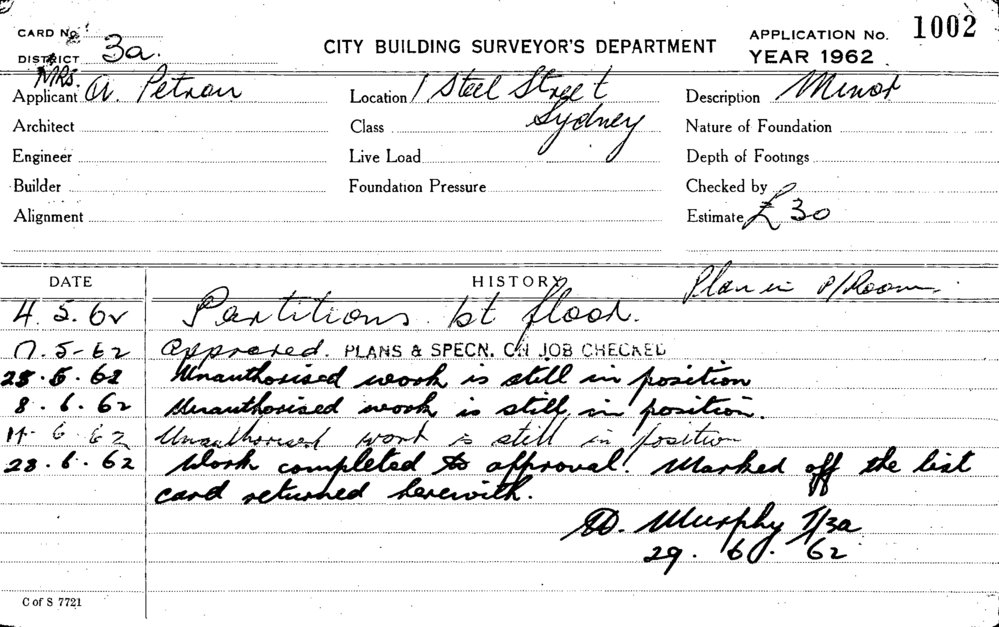 CARD No. APPLICATION No. 1002
DISTRICT 3a. CITY BUILDING SURVEYOR'S DEPARTMENT YEAR 1962
MRS.
Applicant A. Petrou Location 1 Steel Street Description Minor
Architect Class Sydney Nature of Foundation
Engineer Live Load Depth of Footings
Builder Foundation Pressure Checked by
Alignment Estimate £30
DATE HISTORY Plan in P/Room.
4.5.62 Partitions 1st floor.
7.5-62 Approved. PLANS & SPECN. ON JOB CHECKED
25.5.62 Unauthorised work is still in position
8.6.62 Unauthorised work is still in position.
14-6 62 Unauthorised work is still in position
28.6.62 Work completed to approval. Marked off the list
card returned herewith.
D. Murphy I/3a
29.6.62
C of S 7721